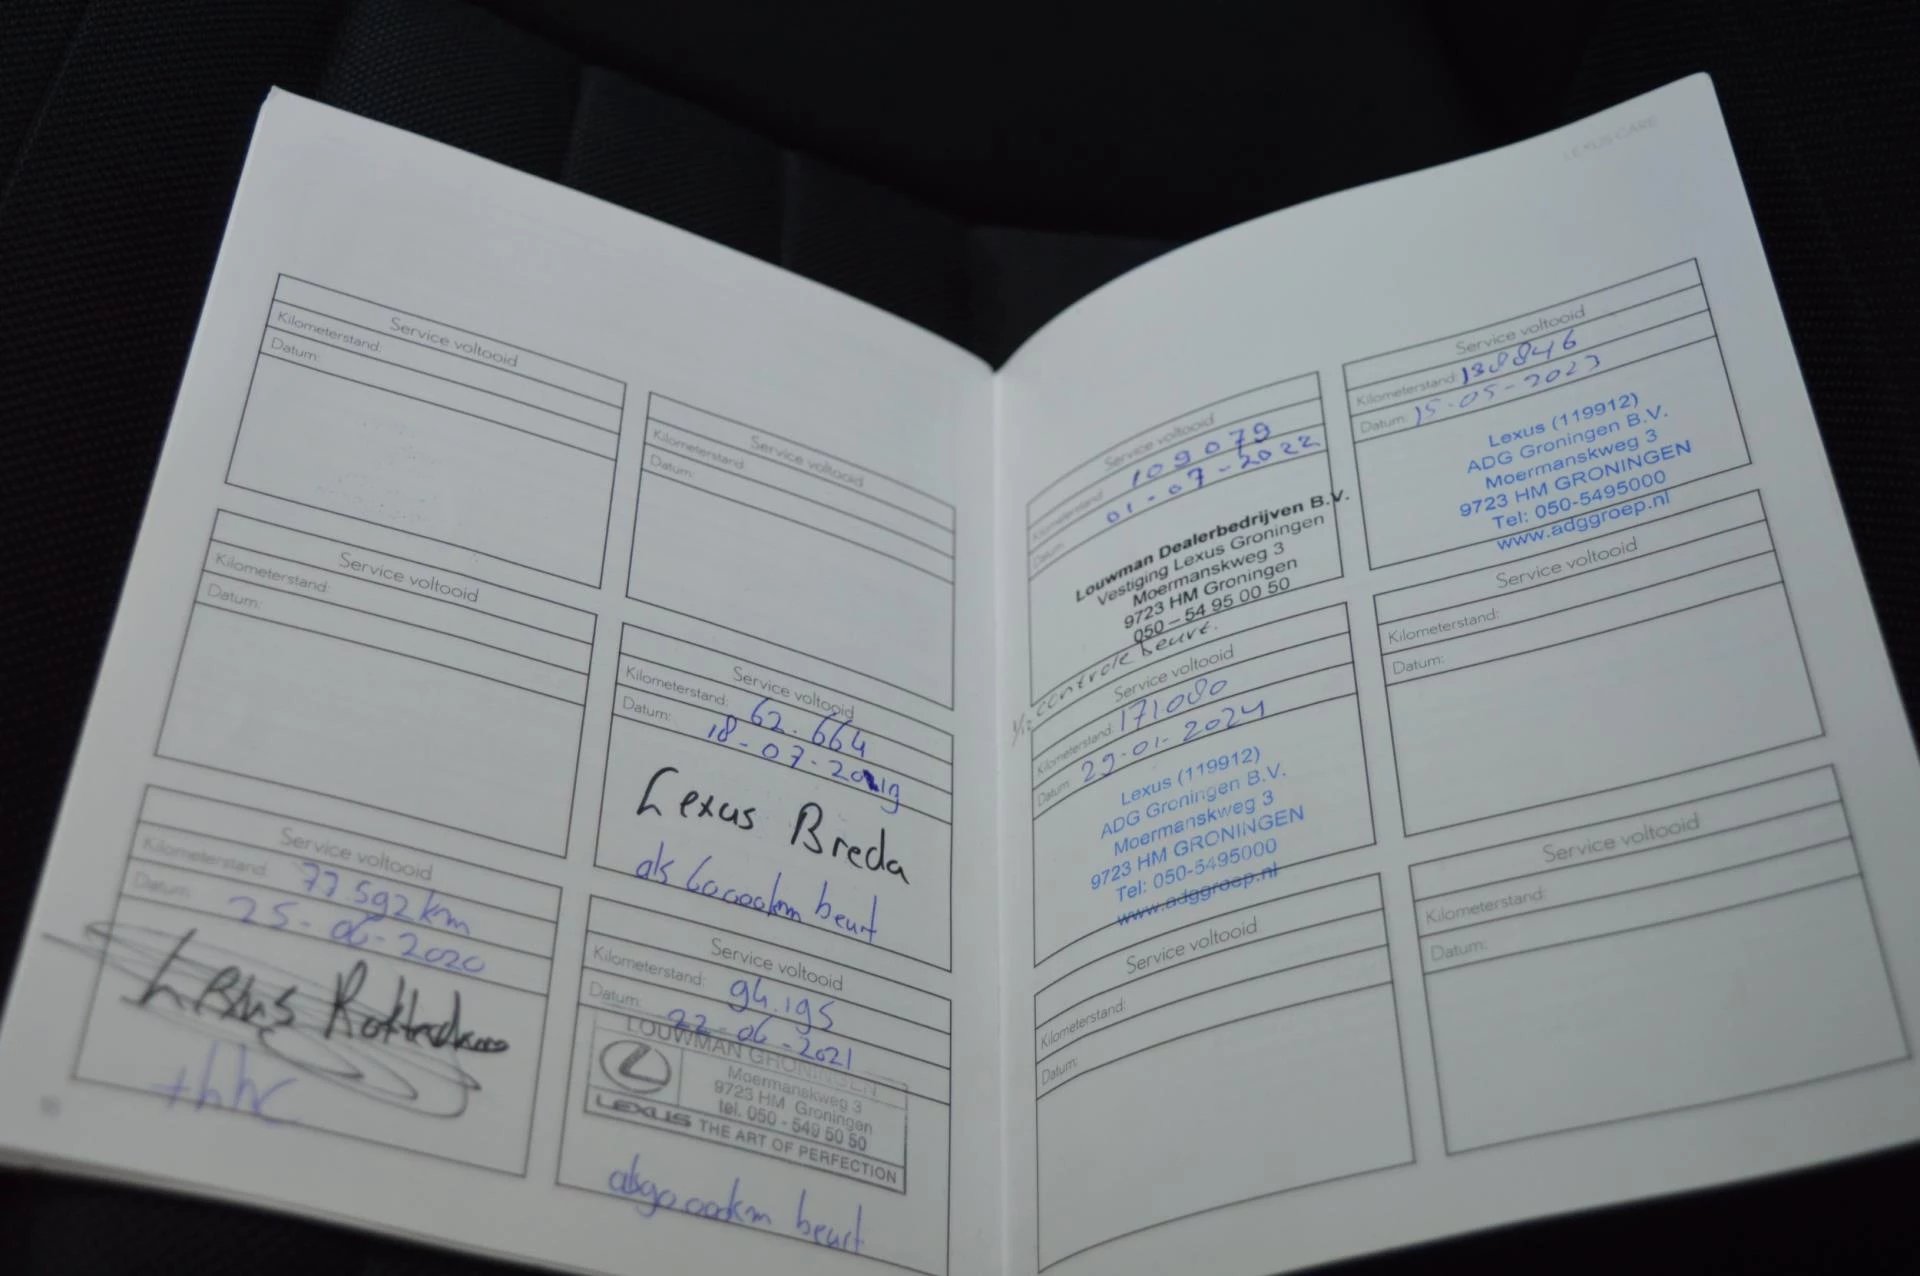 Service voltooid
Kilometerstand:
Datum:
Service voltooid
Kilometerstand:
Datum:
Service voltooid
Kilometerstand:
Datum:
Service voltooid
Kilometerstand: 62.664
Datum: 18-07-2019
Lexus Breda
als 60.000km beurt
Service voltooid
Kilometerstand: 77.592km
Datum: 25-06-2020
Lexus Rotterdam
Service voltooid
Kilometerstand: 94.195
Datum: 22-06-2021
LOUWMAN GRONINGEN
Moermanskweg 3
9723 HM Groningen
tel. 050 - 549 50 50
LEXUS THE ART OF PERFECTION
als 90.000km beurt
LEXUS CARE
Service voltooid
Kilometerstand: 109079
Datum: 01-07-2022
Louwman Dealerbedrijven B.V.
Vestiging Lexus Groningen
Moermanskweg 3
9723 HM Groningen
050 – 54 95 00 50
controle beurt.
Service voltooid
Kilometerstand: 138846
Datum: 15-05-2023
Lexus (119912)
ADG Groningen B.V.
Moermanskweg 3
9723 HM GRONINGEN
Tel: 050-5495000
www.adggroep.nl
Service voltooid
Kilometerstand: 171080
Datum: 29-01-2024
Lexus (119912)
ADG Groningen B.V.
Moermanskweg 3
9723 HM GRONINGEN
Tel: 050-5495000
www.adggroep.nl
Service voltooid
Kilometerstand:
Datum:
Service voltooid
Kilometerstand:
Datum:
Service voltooid
Kilometerstand:
Datum: